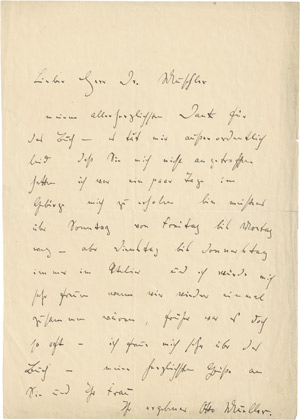 Lieber Herr Dr. Muschler
meinen allerherzlichsten Dank für
das Buch – es tut mir außerordentlich
leid daß Sie mich nicht angetroffen
hatten ich war ein paar Tage im
Gebirge mich zu erholen bin meistens
über Sonntag von Freitag bis Montag
weg – also Dienstag bis Donnerstag
immer im Atelier und ich würde mich
sehr freuen wenn wir wieder einmal
zusammen wären, früher war es doch
so oft – ich freue mich sehr über das
Buch – meine herzlichsten Grüße an
Sie und Ihre Frau
Ihr ergebener Otto Mueller.